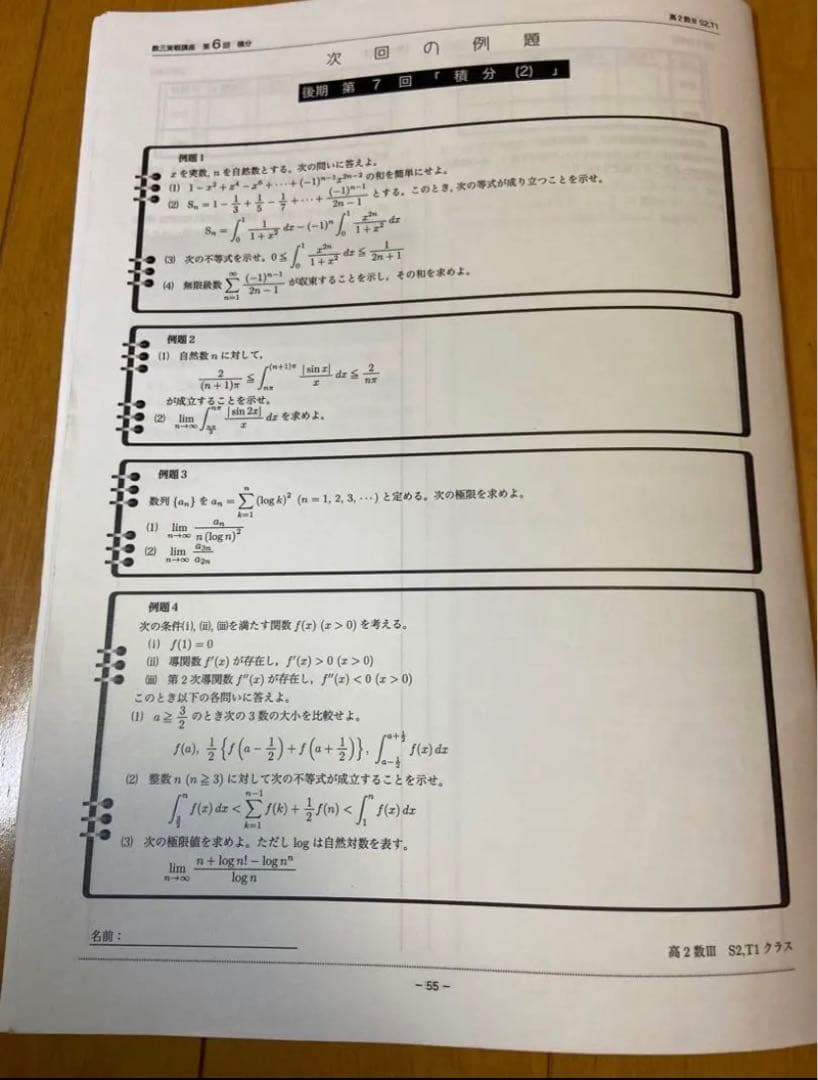 数三実戦講座 第6回 積分
高2数Ⅲ S2,T1
次回の例題
後期 第7回「積分 (2)」
例題1
x を実数, n を自然数とする。次の問いに答えよ。
(1) 1 − x² + x⁴ − x⁶ + ⋯ + (−1)ⁿ⁻¹x²ⁿ⁻² の和を簡単にせよ。
(2) Sₙ = 1 − 1/3 + 1/5 − 1/7 + ⋯ + (−1)ⁿ⁻¹/(2n−1) とする。このとき, 次の等式が成り立つことを示せ。
Sₙ = ∫₀¹ 1/(1+x²) dx − (−1)ⁿ ∫₀¹ x²ⁿ/(1+x²) dx
(3) 次の不等式を示せ。0 ≦ ∫₀¹ x²ⁿ/(1+x²) dx ≦ 1/(2n+1)
(4) 無限級数 ∑_{n=1}^{∞} (−1)ⁿ⁻¹/(2n−1) が収束することを示し, その和を求めよ。
例題2
(1) 自然数 n に対して,
2/((n+1)π) ≦ ∫_{nπ}^{(n+1)π} |sin x|/x dx ≦ 2/(nπ)
が成立することを示せ。
(2) lim_{n→∞} ∫_{nπ/2}^{nπ} |sin 2x|/x dx を求めよ。
例題3
数列 {aₙ} を aₙ = ∑_{k=1}^{n} (log k)² (n = 1, 2, 3, ⋯) と定める。次の極限を求めよ。
(1) lim_{n→∞} aₙ/(n(log n)²)
(2) lim_{n→∞} a₃ₙ/a₂ₙ
例題4
次の条件(ⅰ), (ⅱ), (ⅲ)を満たす関数 f(x) (x > 0) を考える。
(ⅰ) f(1) = 0
(ⅱ) 導関数 f′(x) が存在し, f′(x) > 0 (x > 0)
(ⅲ) 第2次導関数 f″(x) が存在し, f″(x) < 0 (x > 0)
このとき以下の各問いに答えよ。
(1) a ≧ 3/2 のとき次の3数の大小を比較せよ。
f(a), 1/2{f(a − 1/2) + f(a + 1/2)}, ∫_{a−1/2}^{a+1/2} f(x) dx
(2) 整数 n (n ≧ 3) に対して次の不等式が成立することを示せ。
∫_{3/2}^{n} f(x) dx < ∑_{k=1}^{n−1} f(k) + 1/2 f(n) < ∫₁ⁿ f(x) dx
(3) 次の極限値を求めよ。ただし log は自然対数を表す。
lim_{n→∞} (n + log n! − log nⁿ)/log n
名前：
高2数Ⅲ S2,T1クラス
− 55 −